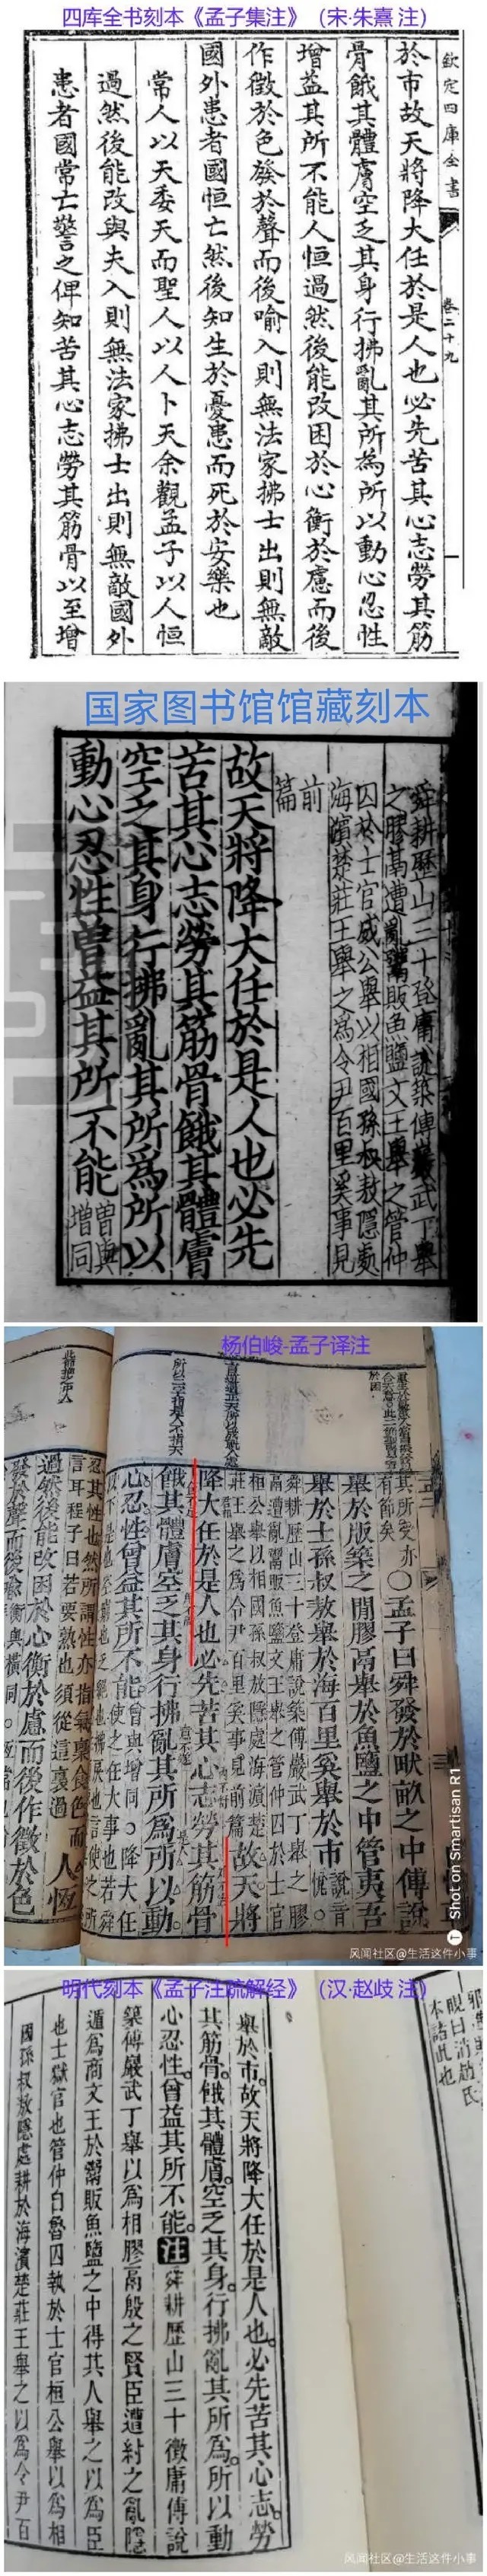 四库全书刻本《孟子集注》（宋·朱熹 注）
欽定四庫全書
卷二十九
於市故天將降大任於是人也必先苦其心志勞其筋
骨餓其體膚空乏其身行拂亂其所為所以動心忍性
增益其所不能人恒過然後能改困於心衡於慮而後
作徵於色發於聲而後喻入則無法家拂士出則無敵
國外患者國恒亡然後知生於憂患而死於安樂也
常人以天委天而聖人以人卜天余觀孟子以人恒
過然後能改與夫入則無法家拂士出則無敵國外
患者國常亡警之俾知苦其心志勞其筋骨以至增
国家图书馆馆藏刻本
舜耕歷山三十登庸說築傅巖武丁舉
之膠鬲遭亂鬻販魚鹽文王舉之管仲
囚於士官威公舉以相國孫叔敖隱處
海濱楚莊王舉之為令尹百里奚事見
前
篇
故天將降大任於是人也必先
苦其心志勞其筋骨餓其體膚
空乏其身行拂亂其所為所以
動心忍性曾益其所不能
曾與
增同
杨伯峻·孟子译注
其所受亦
有節矣
○孟子曰舜發於畎畝之中傅說
舉於版築之間膠鬲舉於魚鹽之中管夷吾
舉於士孫叔敖舉於海百里奚舉於市
說音
悅○
舜耕歷山三十登庸說築傅巖武丁舉之膠
鬲遭亂鬻販魚鹽文王舉之管仲囚於士官
相公舉以相國孫叔敖隱處海濱楚
莊王舉之為令尹百里奚事見前篇
故天將
降大任於是人也必先苦其心志勞其筋骨
餓其體膚空乏其身行拂亂其所為所以動
心忍性曾益其所不能
曾與增同○降大任
使之任大事也若舜
忍其性也然所謂性亦指氣稟食色而
言耳程子曰若要熟也須從這裏過
人恆
過然後能改困於心衡於慮而後作徵於色
發於聲而後喻
衡與橫同○
Shot on Smartisan R1
风闻社区@生活这件小事
明代刻本《孟子注疏解经》（汉·赵歧 注）
不諸此也
舉於市故天將降大任於是人也必先苦其心志勞
其筋骨餓其體膚空乏其身行拂亂其所為所以動
心忍性曾益其所不能注舜耕歷山三十徵庸傅說
築傅巖武丁舉以為相膠鬲殷之賢臣遭紂之亂隱
遁為商文王於鬻販魚鹽之中得其人舉之以為臣
也士獄官也管仲自魯囚執於士官桓公舉以為相
國孫叔敖隱處耕於海濱楚莊王舉之以為令尹百
风闻社区@生活这件小事